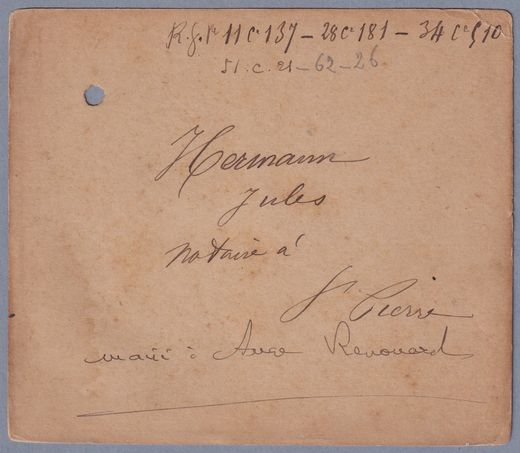 R.g. 11 c. 137 - 28 c. 181 - 34 c.
51. c. 21 - 62 - 26
Hermann
Jules
notaire à
St Pierre
marié à Renouard